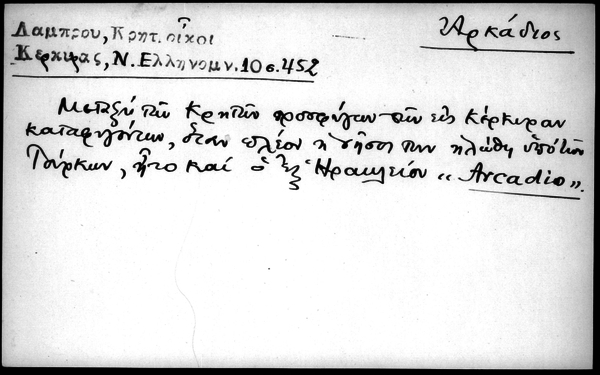 Λαμπρου, Κρητ. οἶκοι
Κερκυρας, Ν. Ελληνομν. 10 σ. 452
Ἀρκάδιος
Μεταξὺ τῶν Κρητῶν προσφύγων τῶν εἰς Κέρκυραν
καταφυγόντων, ὅταν πλέον ἡ νῆσος των ὑπὸ τῶν
Τούρκων, ἦτο καί ὁ ἐξ Ἡρακλείου „ Arcadio".